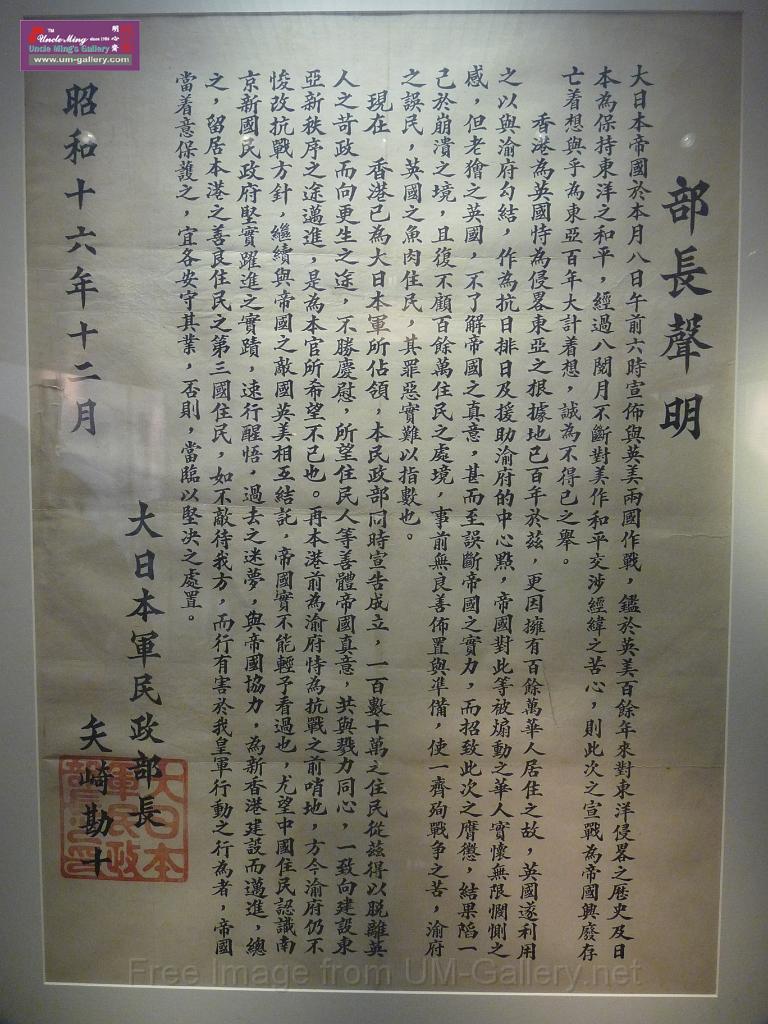 部長聲明
大日本帝國於本月八日午前六時宣佈與英美兩國作戰，鑑於英美百餘年來對東洋侵畧之歷史及日
本為保持東洋之和平，經過八閱月不斷對美作和平交涉經緯之苦心，則此次之宣戰為帝國興廢存
亡着想與乎為東亞百年大計着想，誠為不得已之舉。
香港為英國恃為侵畧東亞之根據地已百年於茲，更因擁有百餘萬華人居住之故，英國遂利用
之以與渝府勾結，作為抗日排日及援助渝府的中心點，帝國對此等被煽動之華人實懷無限憫惻之
感，但老獪之英國，不了解帝國之真意，甚而至誤斷帝國之實力，而招致此次之膺懲，結果陷一
己於崩潰之境，且復不顧百餘萬住民之處境，事前無良善佈置與準備，使一齊殉戰爭之苦，渝府
之誤民，英國之魚肉住民，其罪惡實難以指數也。
現在 香港已為大日本軍所佔領，本民政部同時宣告成立，一百數十萬之住民從茲得以脱離英
人之苛政而向更生之途，不勝慶慰，所望住民人等善體帝國真意，共與戮力同心，一致向建設東
亞新秩序之途邁進，是為本官所希望不已也。再本港前為渝府恃為抗戰之前哨地，方今渝府仍不
悛改抗戰方針，繼續與帝國之敵國英美相互結託，帝國實不能輕予看過也，尤望中國住民認識南
京新國民政府堅實躍進之實蹟，速行醒悟，過去之迷夢，與帝國協力，為新香港建設而邁進，總
之，留居本港之善良住民之第三國住民，如不敵待我方，而行有害於我皇軍行動之行為者，帝國
當着意保護之，宜各安守其業，否則，當臨以堅決之處置。
大日本軍民政部長
矢崎勘十
昭和十六年十二月
大日本
軍民政
部長印
Uncle Ming since 1986
明心齋
Uncle Ming's Gallery
www.um-gallery.com
Free Image from UM-Gallery.net